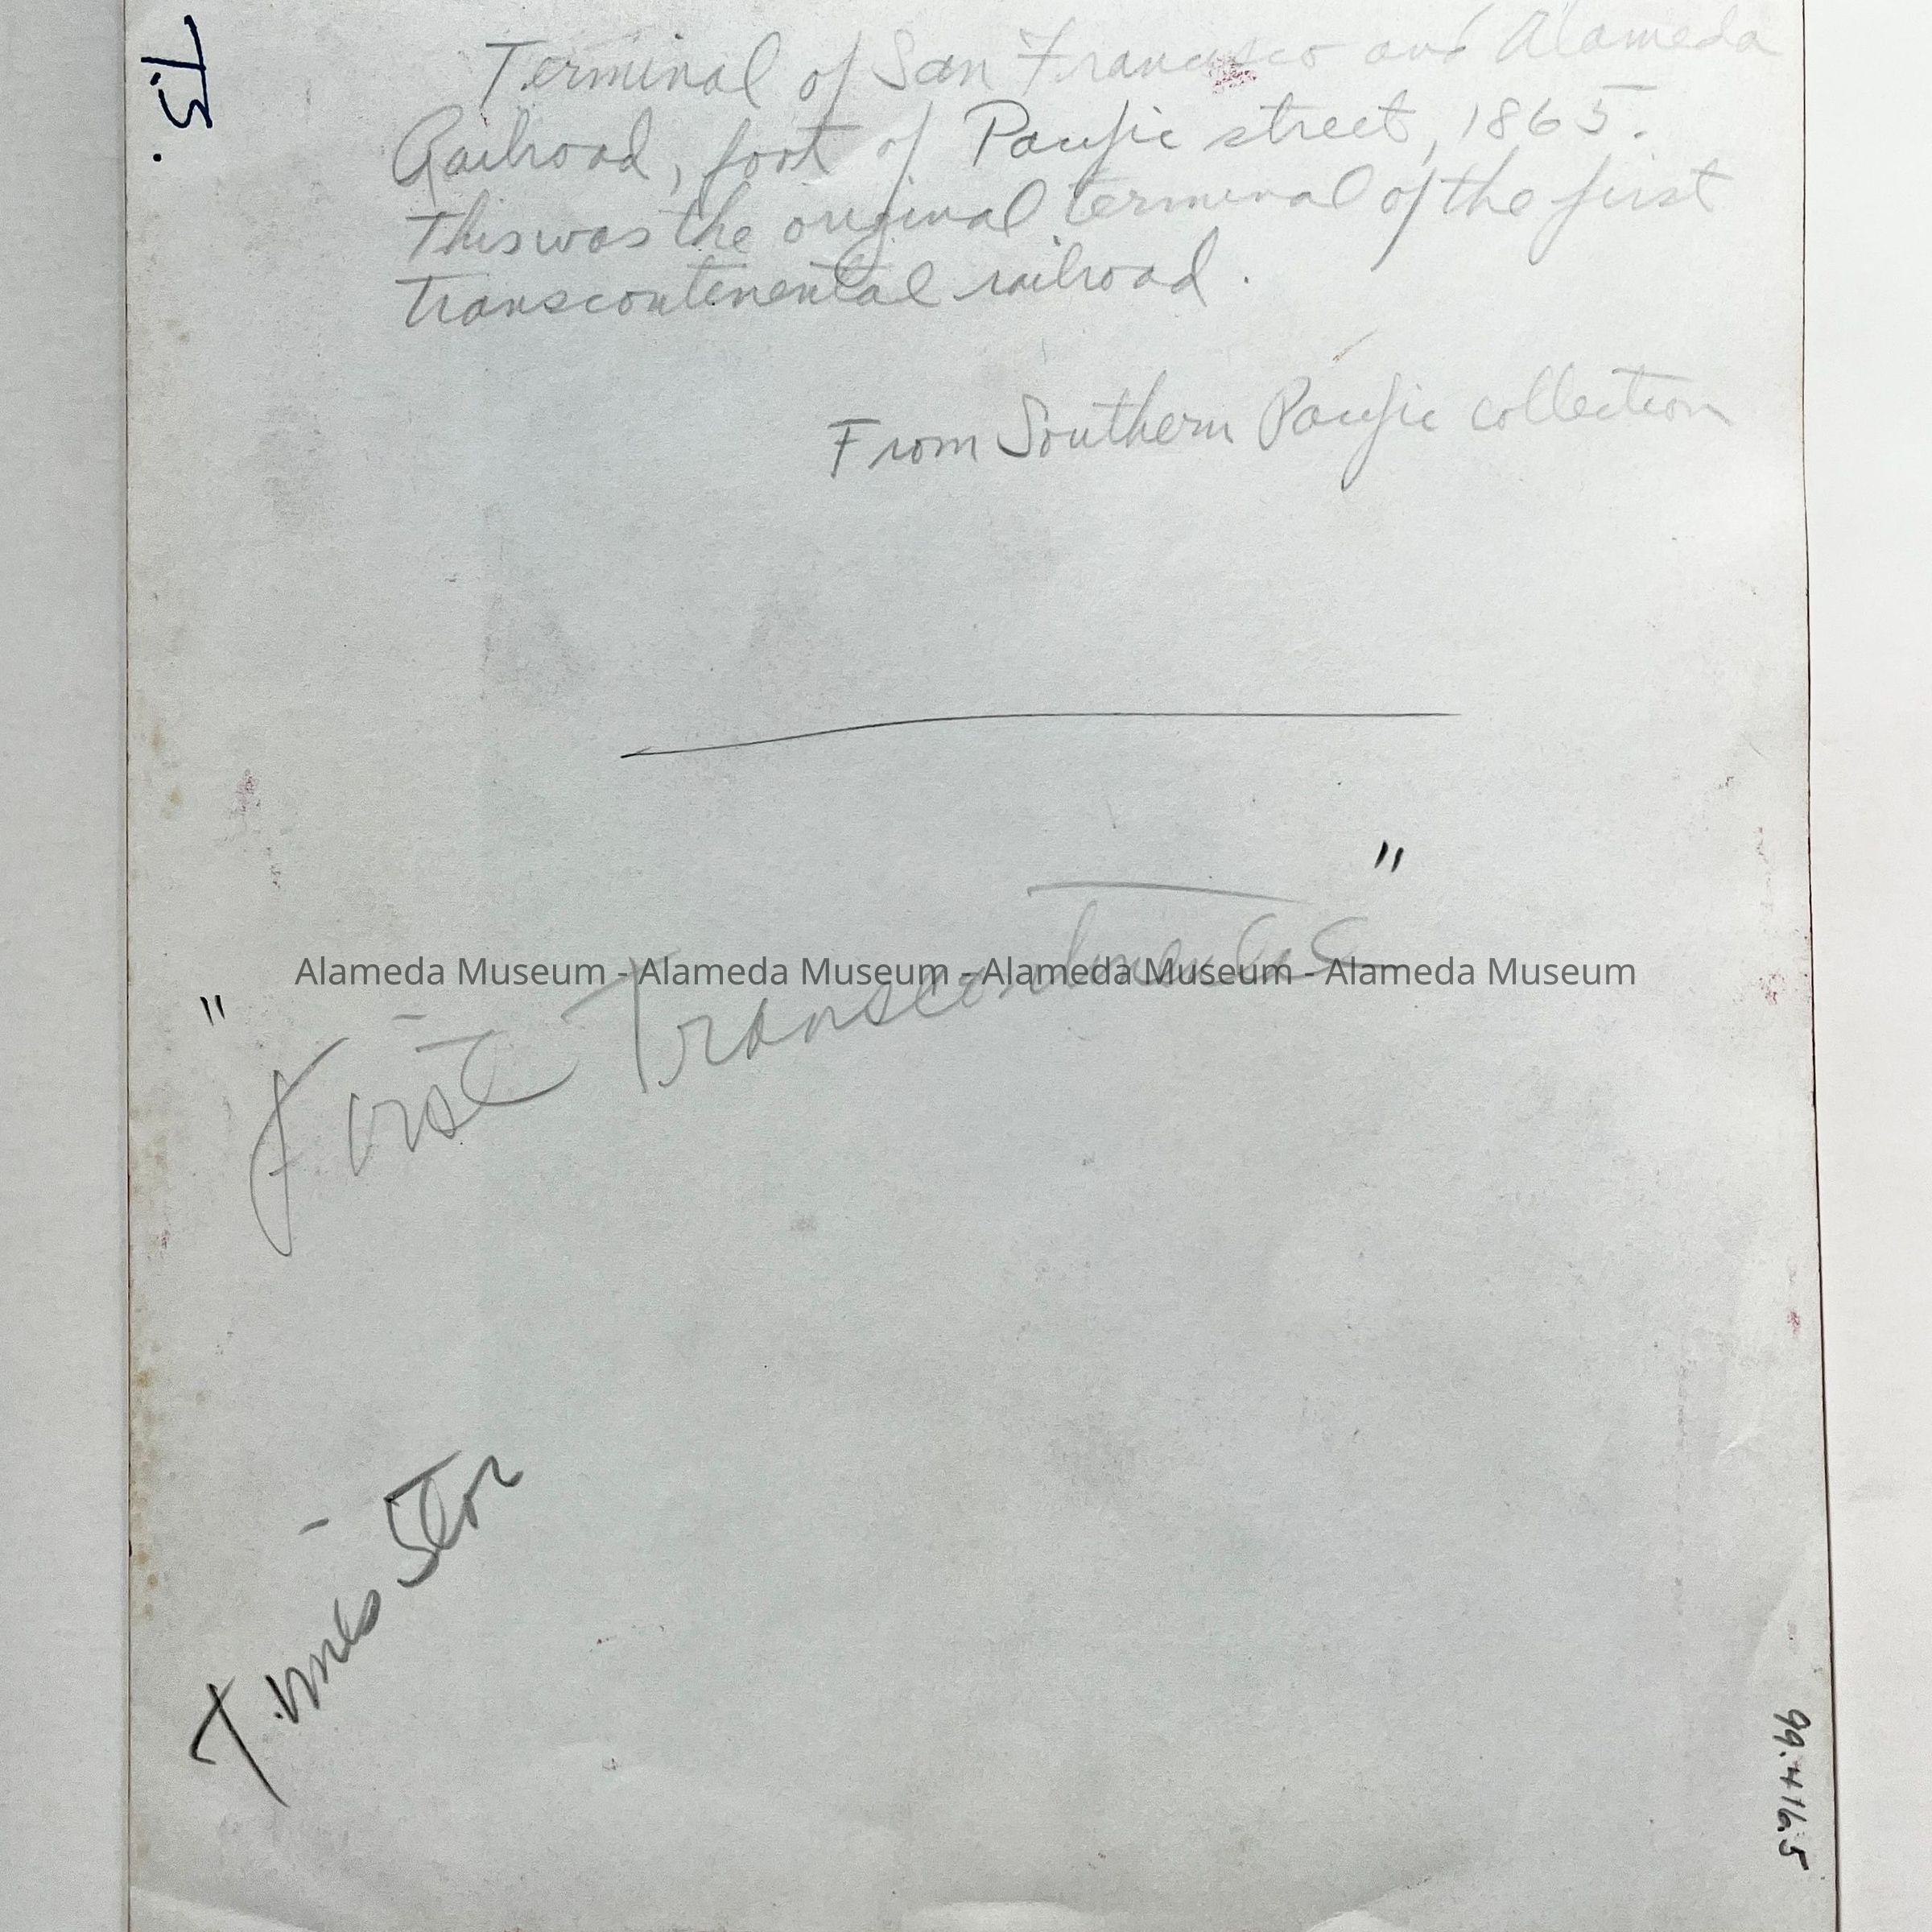 T5.
Terminal of San Francisco and Alameda
Railroad, foot of Pacific street, 1865.
This was the original terminal of the first
transcontinental railroad.
From Southern Pacific collection
"First Transcontinental"
Alameda Museum - Alameda Museum - Alameda Museum - Alameda Museum
Times Star
99.416.5